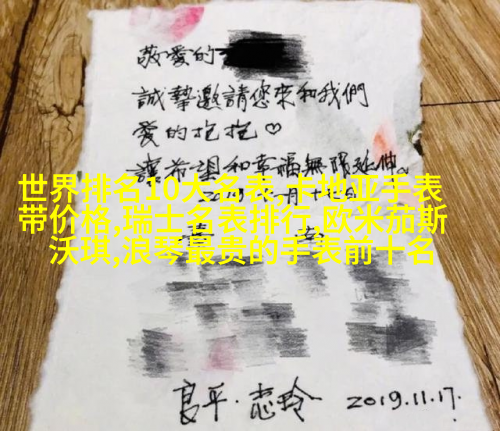 敬愛的
誠摯邀請您來和我們
愛的抱抱♡
讓希望和幸福無限延伸。
世界排名10大名表,卡地亚手表
带价格,瑞士名表排行,欧米茄斯
沃琪,浪琴最贵的手表前十名
良平·志玲 2019.11.17.